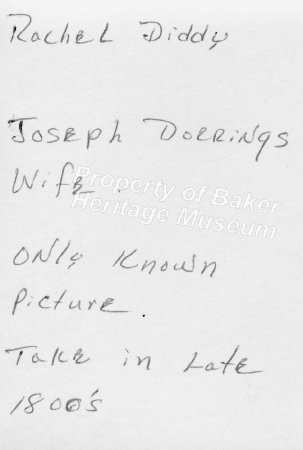 Rachel Diddy
Joseph Doerings
Wife.
Property of Baker
Heritage Museum
Only Known
Picture.
Take in Late
1800's